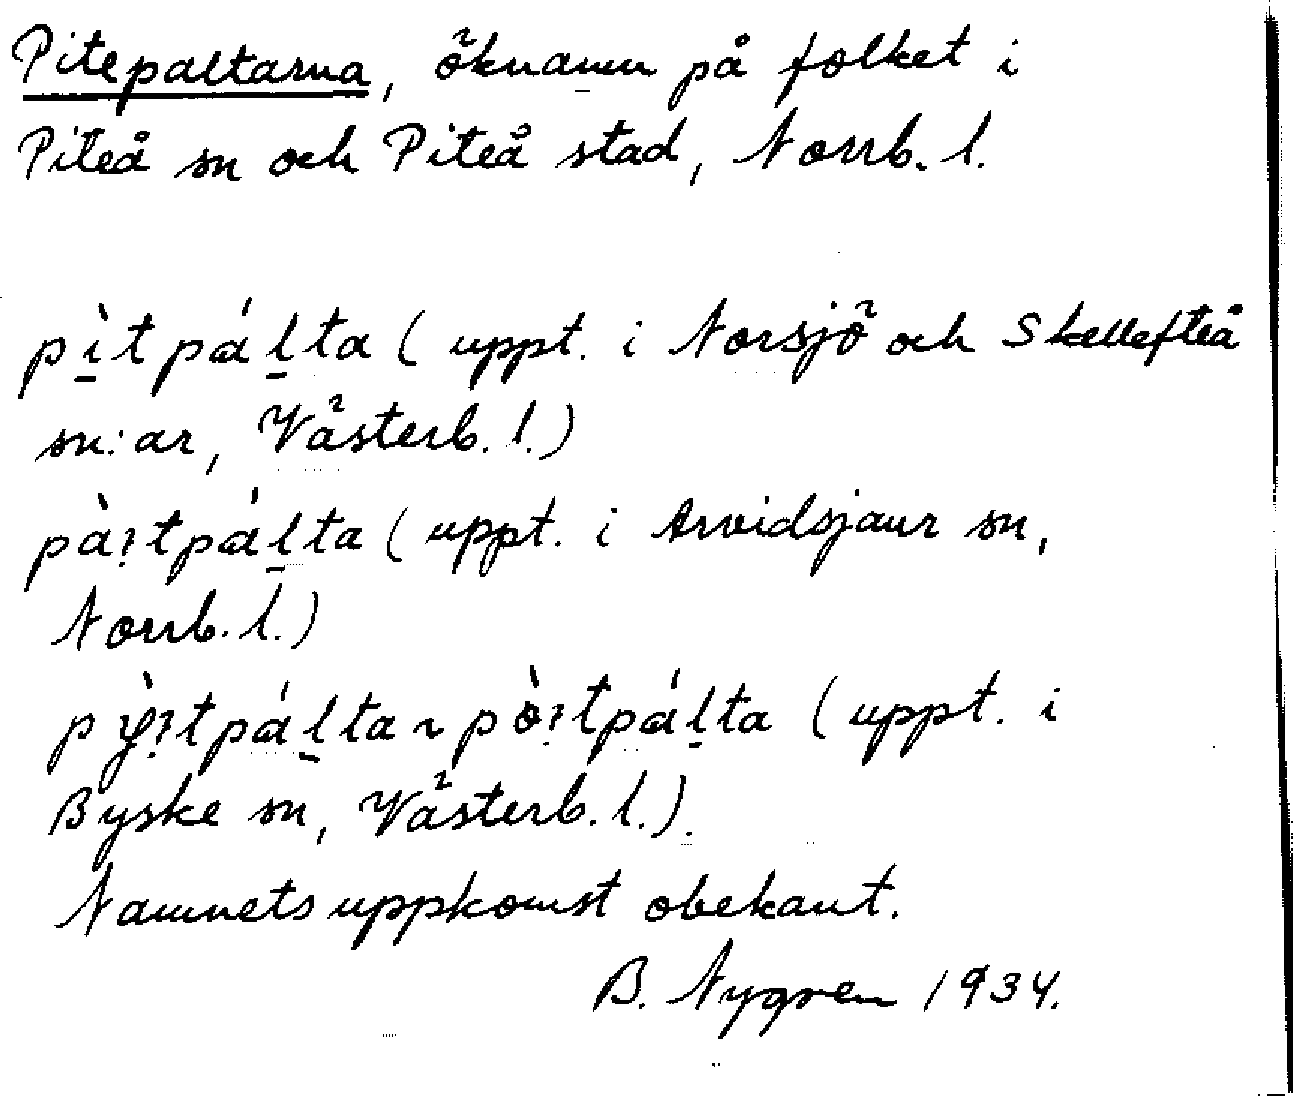 Pitepaltarna, öknamn på folket i
Piteå sn och Piteå stad, Norrb. l.
pı̱̀tpáḻta (uppt. i Norsjö och Skellefteå
sn:ar, Västerb. l.)
pàı̣tpáḻta (uppt. i Arvidsjaur sn,
Norrb. l.)
pỳı̣tpáḻta ~ pòı̣tpáḻta (uppt. i
Byske sn, Västerb. l.).
Namnets uppkomst obekant.
B. Nygren 1934.